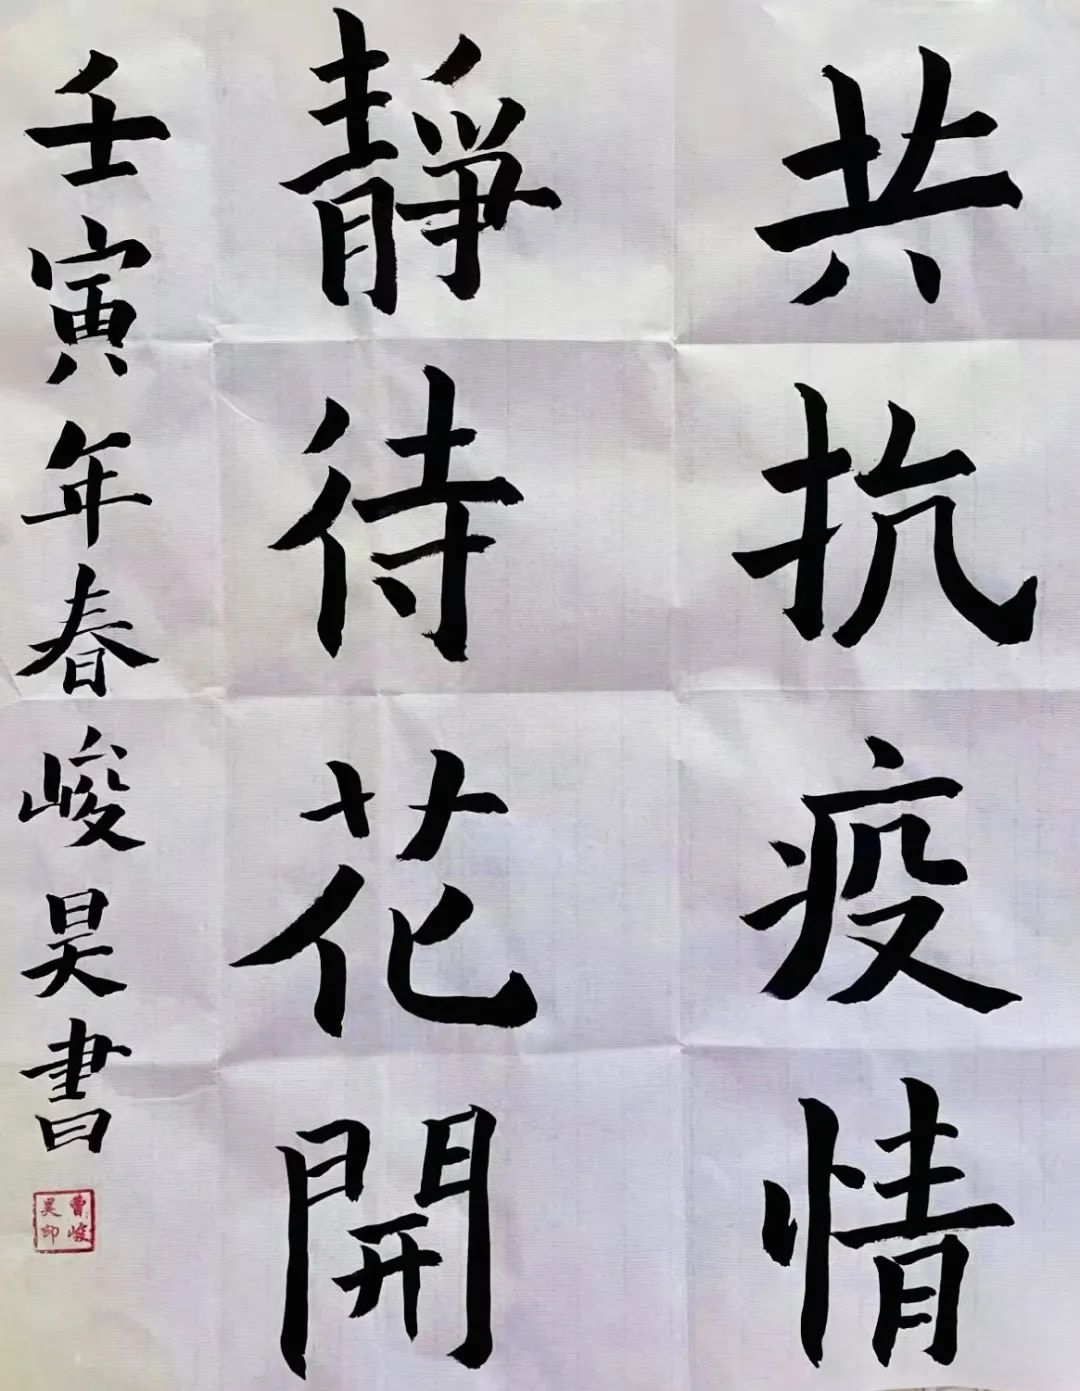 共抗疫情
靜待花開
壬寅年春峻昊書
曹峻昊印